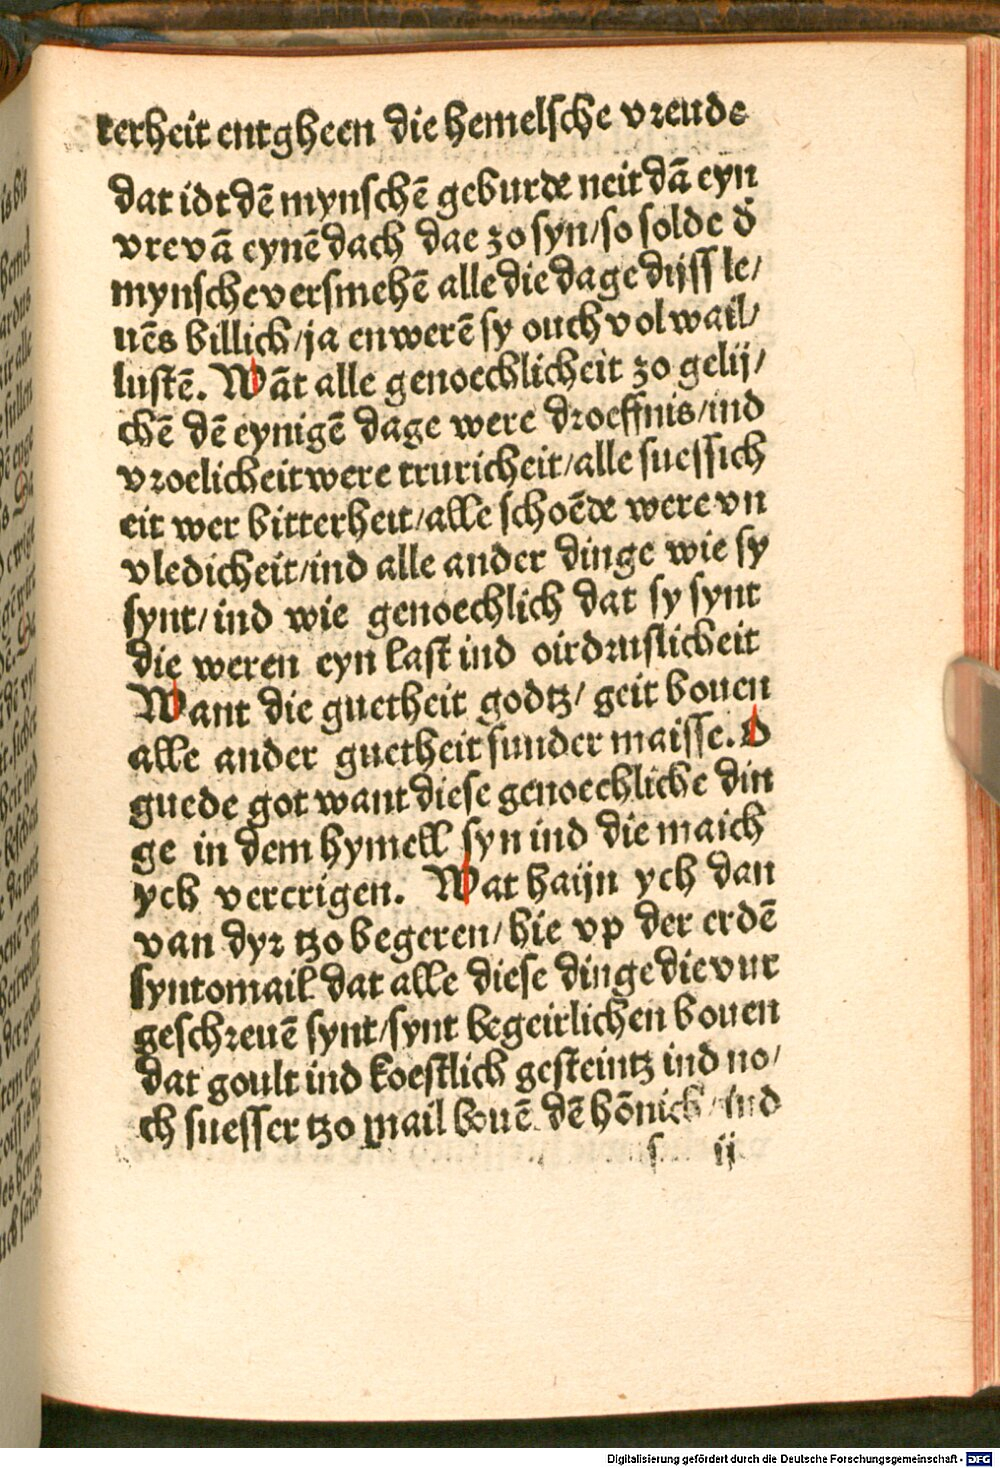 kerheit entgheen die hemelsche vreude
dat idt dē mynschē geburde neit dā eyn
vre vā eynē dach dae zo syn/so solde d̄
mynsche versmehē alle die dage dijss le/
uēs billich/ja en werē sy ouch vol wail/
lustē. Wāt alle genoechlicheit zo gelij/
chē dē eynigē dage were droeffnis/ind
vroelicheit were truricheit/alle suessich
eit wer bitterheit/alle schoēde were vn
vledicheit/ind alle ander dinge wie sy
synt/ind wie genoechlich dat sy synt
die weren eyn last ind oirdruslicheit
Want die guetheit godtz/ geit bouen
alle ander guetheit sunder maisse. O
guede got want diese genoechliche din
ge in dem hymell syn ind die maich
ych vercrigen. Wat haijn ych dan
van dyr tzo begeren/hie vp der erdē
syntomail dat alle diese dinge die vur
geschreuē synt/synt begeirlichen bouen
dat goult ind koestlich gesteintz ind no/
ch suesser tzo mail bouē dē hōnich/ind
s ij
Digitalisierung gefördert durch die Deutsche Forschungsgemeinschaft - DFG